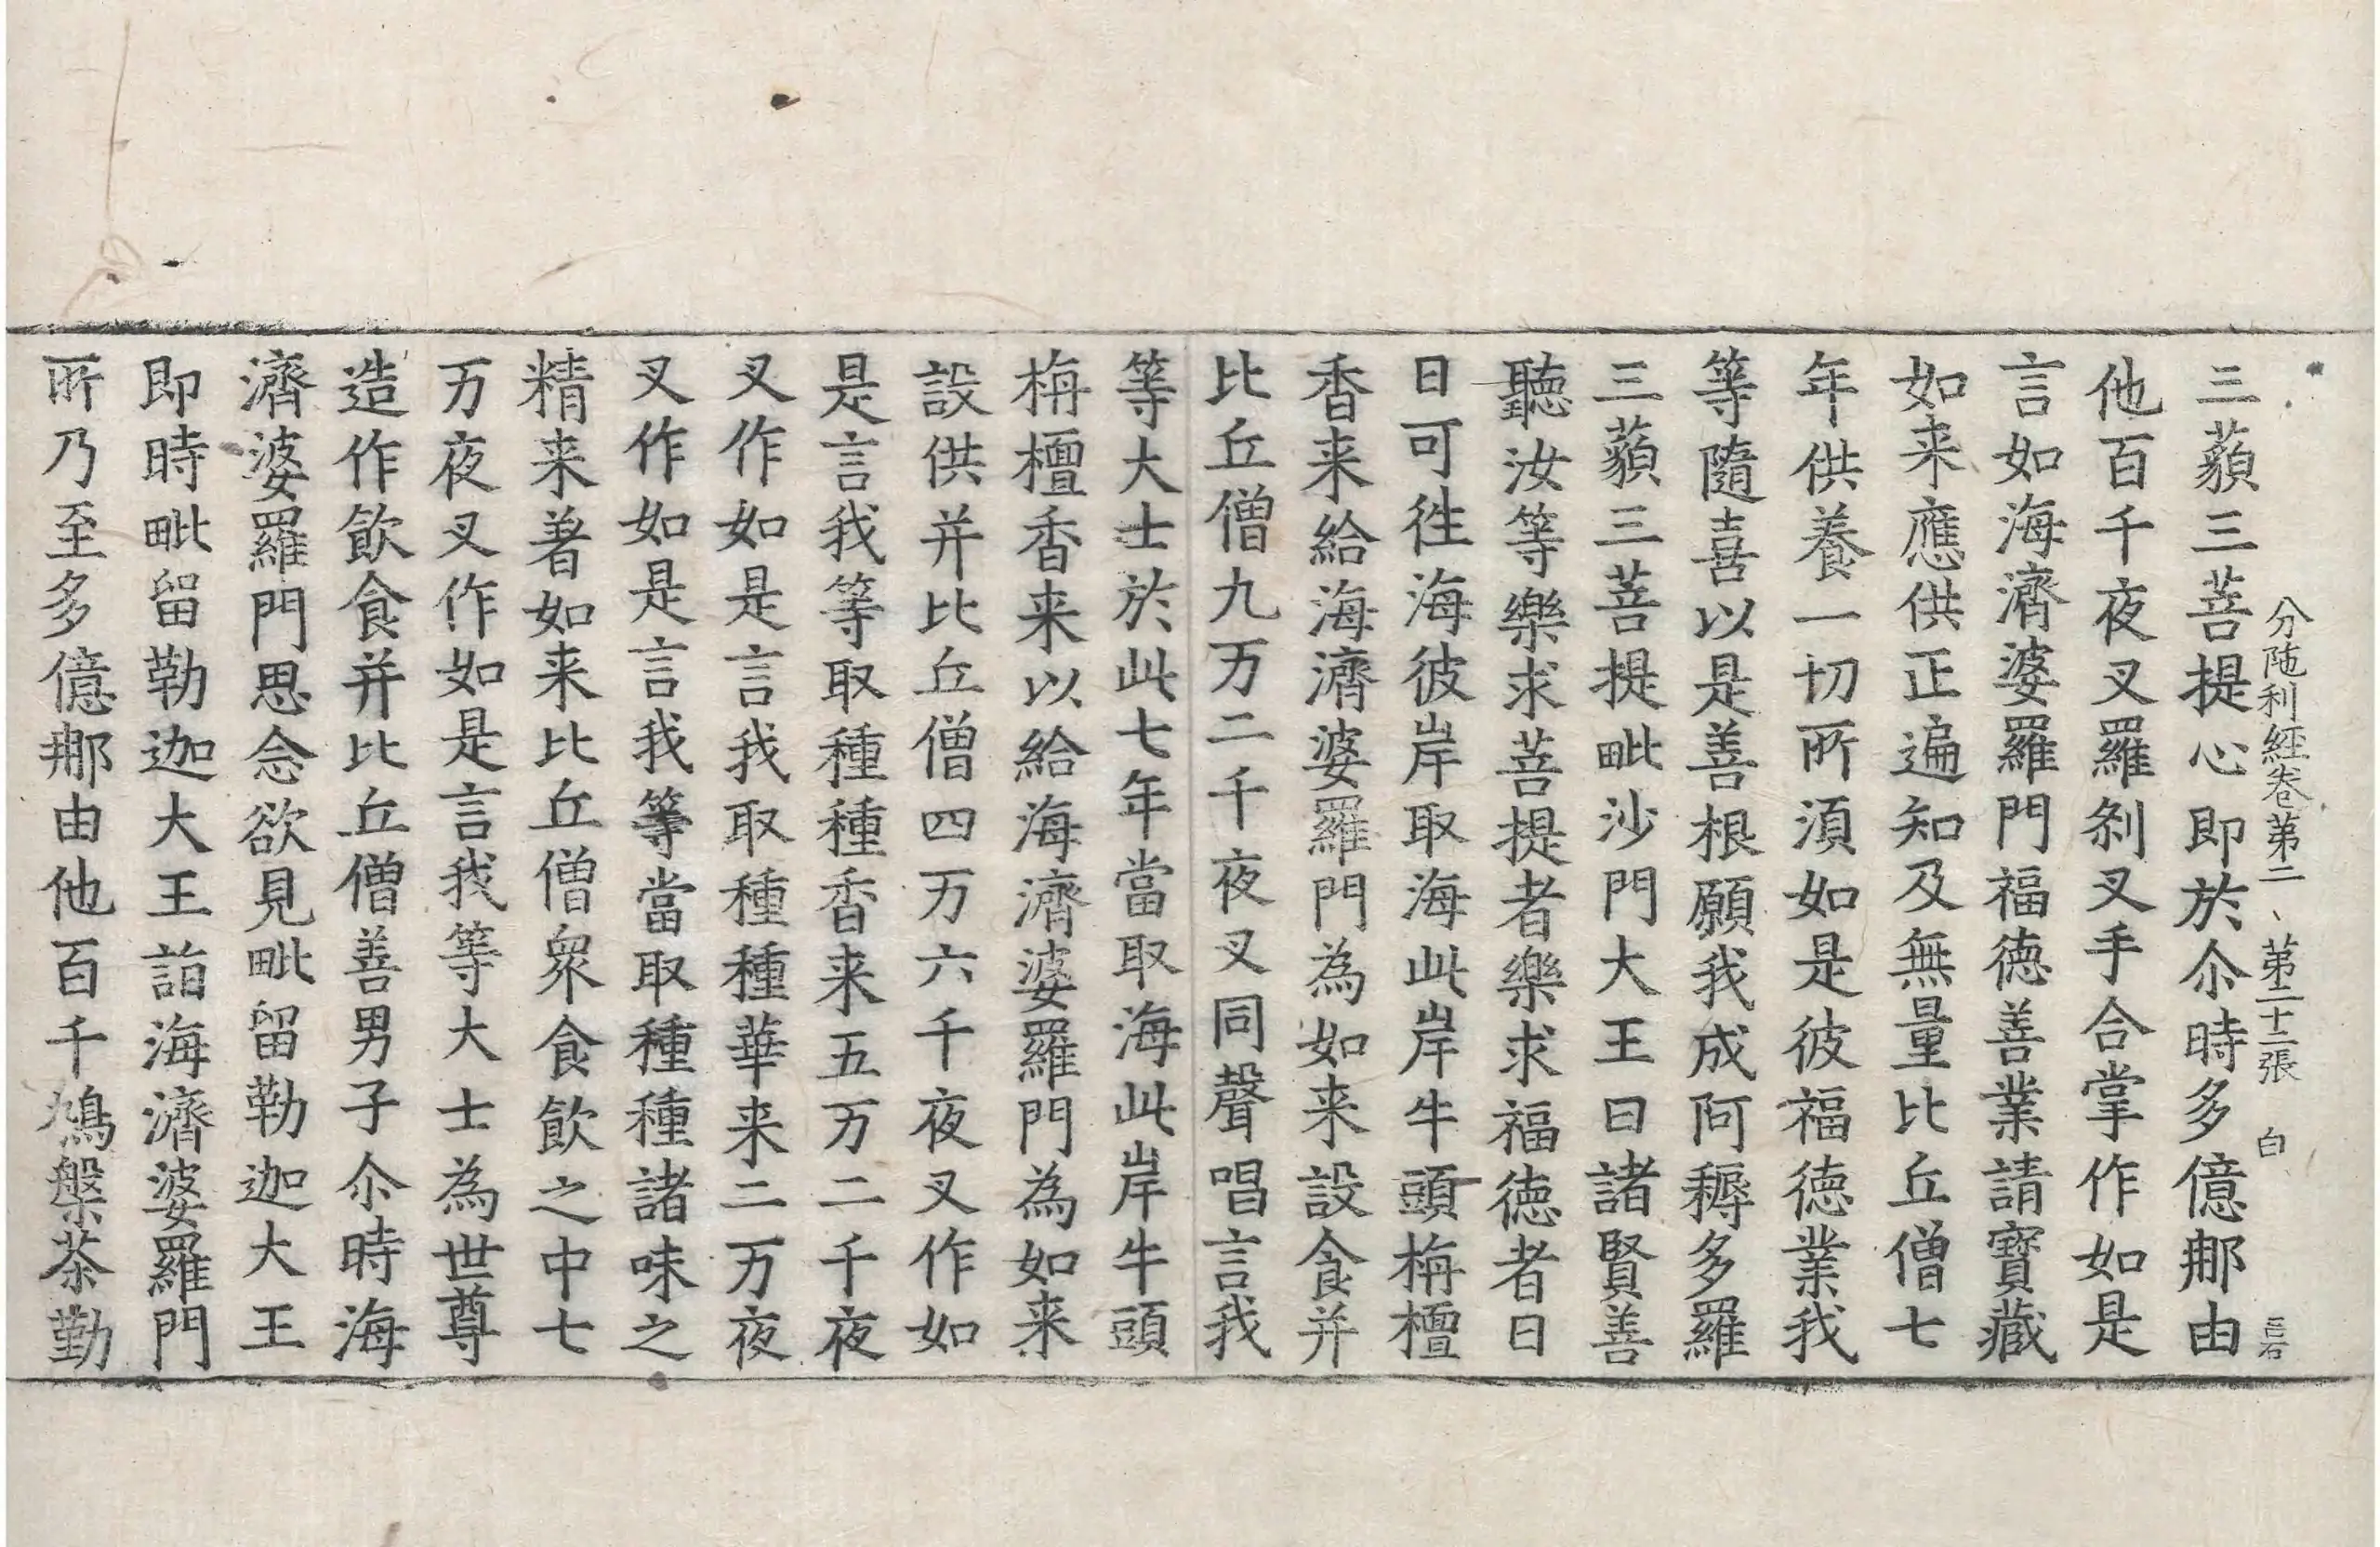 三藐三菩提心即於尒時多億那由
分陁利經卷第二 第二十二張 白
他百千夜叉羅剎叉手合掌作如是
言如海濟婆羅門福德善業請寶藏
如来應供正遍知及無量比丘僧七
年供養一切所須如是彼福德業我
等隨喜以是善根願我成阿耨多羅
三藐三菩提毗沙門大王曰諸賢善
聽汝等樂求菩提者樂求福德者日
日可往海彼岸取海此岸牛頭栴檀
香来給海濟婆羅門為如来設食并
比丘僧九万二千夜叉同聲唱言我
等大士於此七年當取海此岸牛頭
栴檀香来以給海濟婆羅門為如来
設供并比丘僧四万六千夜叉作如
是言我等取種種香来五万二千夜
叉作如是言我取種種華来二万夜
叉作如是言我等當取種種諸味之
精来著如来比丘僧眾食飲之中七
万夜叉作如是言我等大士為世尊
造作飲食并比丘僧善男子尒時海
濟婆羅門思念欲見毗留勒迦大王
即時毗留勒迦大王詣海濟婆羅門
所乃至多億那由他百千鳩槃茶勤